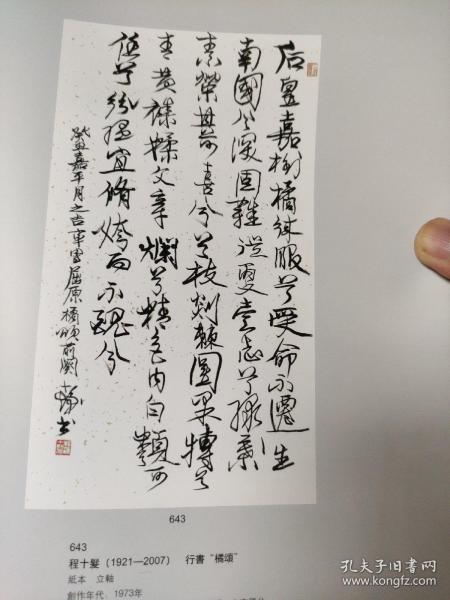 后皇嘉樹橘徠服兮受命不遷生
南國兮深固難徙更壹志兮綠葉
素榮紛其可喜兮曾枝剡棘圓果摶兮
青黃雜糅文章爛兮精色內白類可
任兮紛縕宜脩姱而不醜兮
嘉平月之吉率寫屈原橘頌前闋 十髮書
643
643
程十髮（1921—2007） 行書“橘頌”
紙本 立軸
創作年代：1973年
孔夫子旧书网